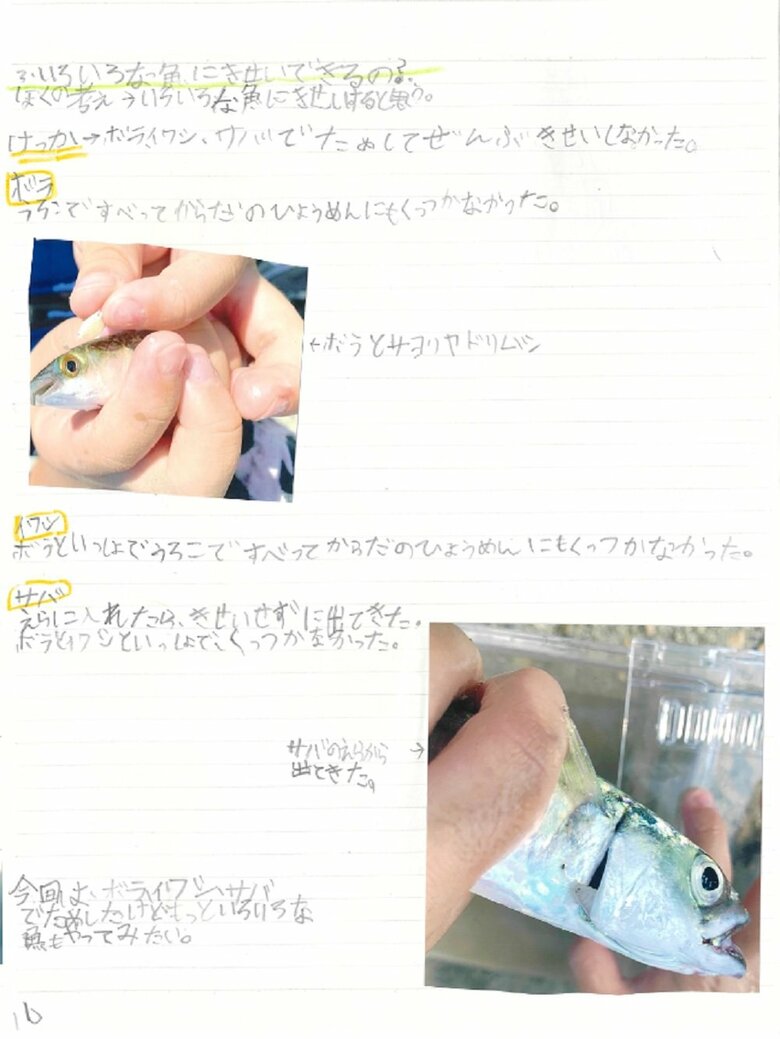 3.いろいろな魚にきせいできるの?
ぼくの考え→いろいろな魚にきせいすると思う。
けっか→ボラ、イワシ、サバでためしてぜんぶきせいしなかった。
ボラ
うろこですべってからだのひょうめんにもくっつかなかった。
←ボラとサヨリヤドリムシ
イワシ
ボラといっしょでうろこですべってからだのひょうめんにもくっつかなかった。
サバ
えらに入れたら、きせいせずに出てきた。
ボラとイワシといっしょで、くっつかなかった。
サバのえらから→
出てきた。
今回は、ボライワシ、サバ
でためしたけどもっといろいろな
魚もやってみたい。
16